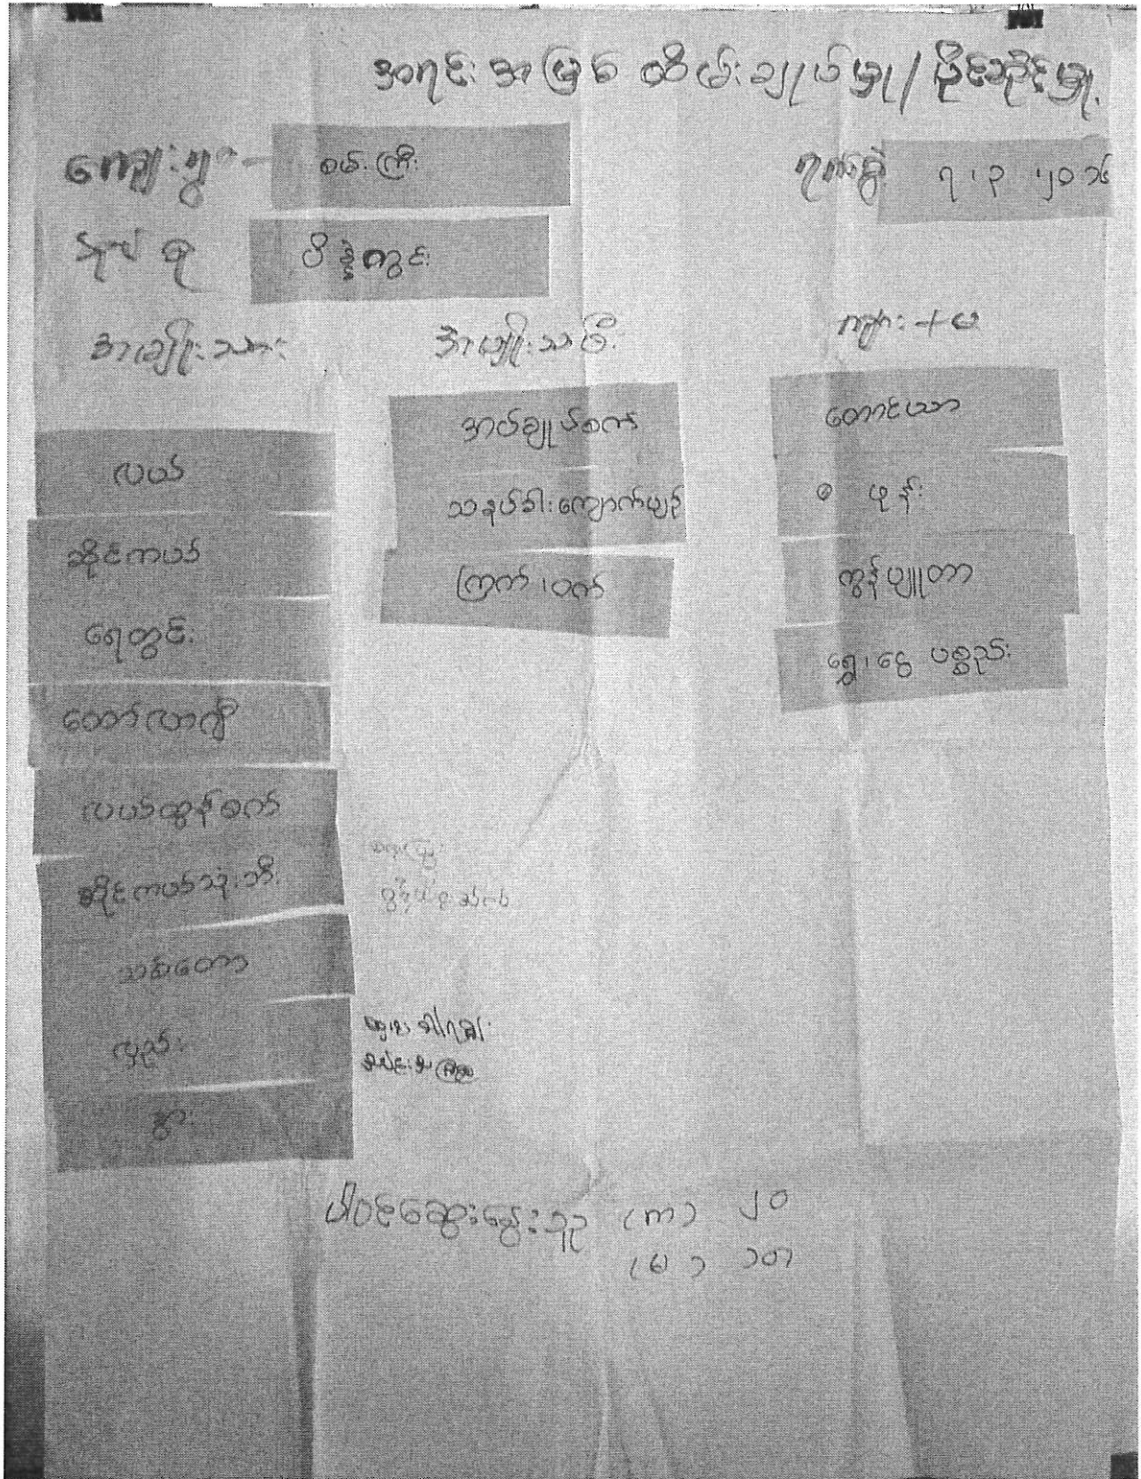 အရင်းအမြစ် ထိမ်းချုပ်မှု / ပိုင်ဆိုင်မှု
ကျေးရွာ - စမ်းကြီး ရက်စွဲ ၇၊၃၊၂၀၁၆
အုပ်စု ပိန္နဲကွင်း
အမျိုးသား အမျိုးသမီး ကျား + မ
လယ်
ဆိုင်ကယ်
ရေတွင်း
ထော်လာဂျီ
လယ်ထွန်စက်
ဆိုင်ကယ်သုံးဘီး
သစ်တော
လှည်း
နွား
အပ်ချုပ်စက်
သနပ်ခါးကျောက်ပျဉ်
ကြက်၊ဝက်
တောင်ယာ
ဖုန်း
ကွန်ပျူတာ
ရွှေ၊ငွေ ပစ္စည်း
ပါဝင်ဆွေးနွေးသူ (ကျာ) ၂၀
(မ) ၁၈